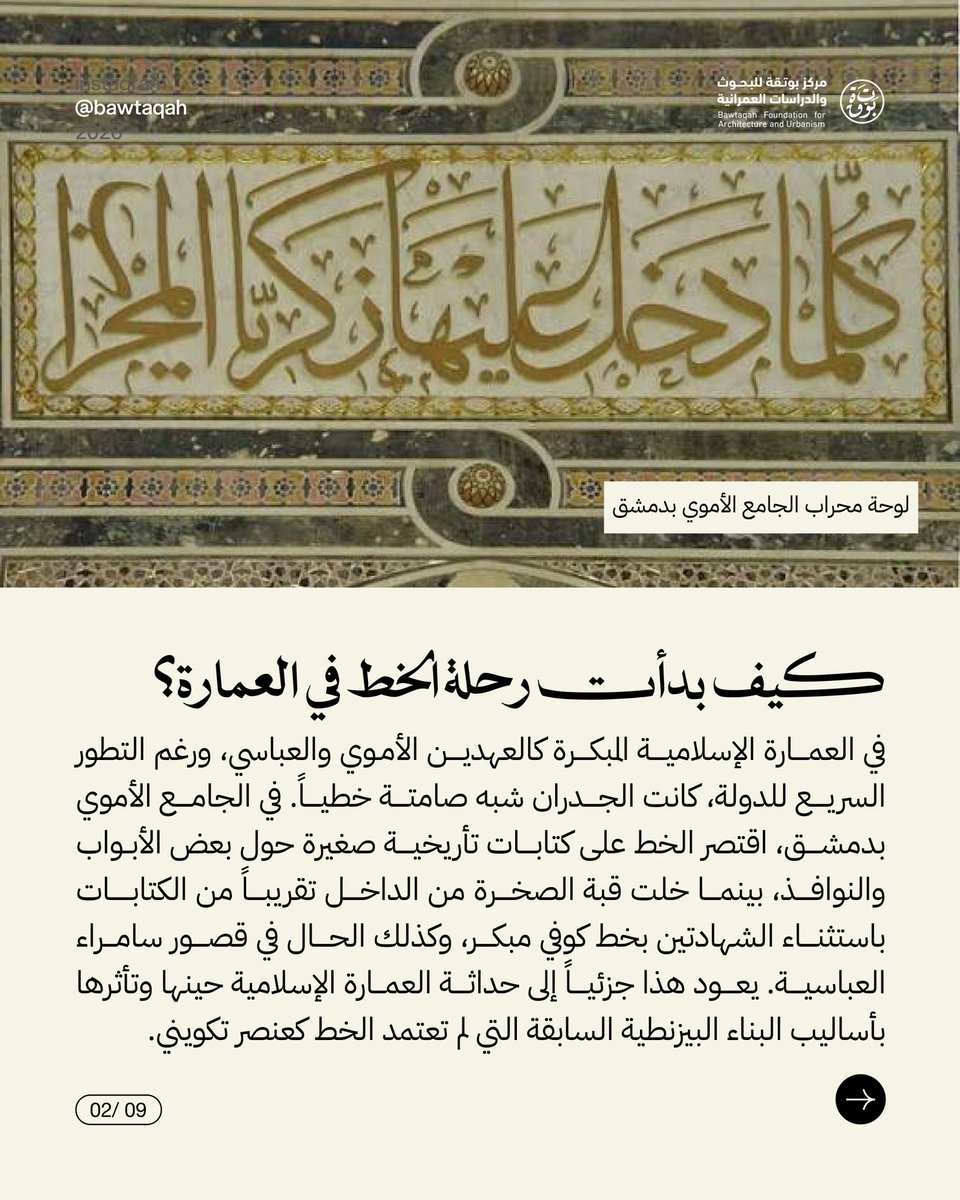 Instagram
@bawtaqah
2026
مركز بوتقة للبحوث
والدراسات العمرانية
Bawtaqah Foundation for
Architecture and Urbanism
بوتقة
كُلَّمَا دَخَلَ عَلَيْهَا زَكَرِيَّا الْمِحْرَابَ
لوحة محراب الجامع الأموي بدمشق
كيف بدأت رحلة الخط في العمارة؟
في العمارة الإسلامية المبكرة كالعهدين الأموي والعباسي، ورغم التطور
السريع للدولة، كانت الجدران شبه صامتة خطياً. في الجامع الأموي
بدمشق، اقتصر الخط على كتابات تأريخية صغيرة حول بعض الأبواب
والنوافذ، بينما خلت قبة الصخرة من الداخل تقريباً من الكتابات
باستثناء الشهادتين بخط كوفي مبكر، وكذلك الحال في قصور سامراء
العباسية. يعود هذا جزئياً إلى حداثة العمارة الإسلامية حينها وتأثرها
بأساليب البناء البيزنطية السابقة التي لم تعتمد الخط كعنصر تكويني.
02/ 09